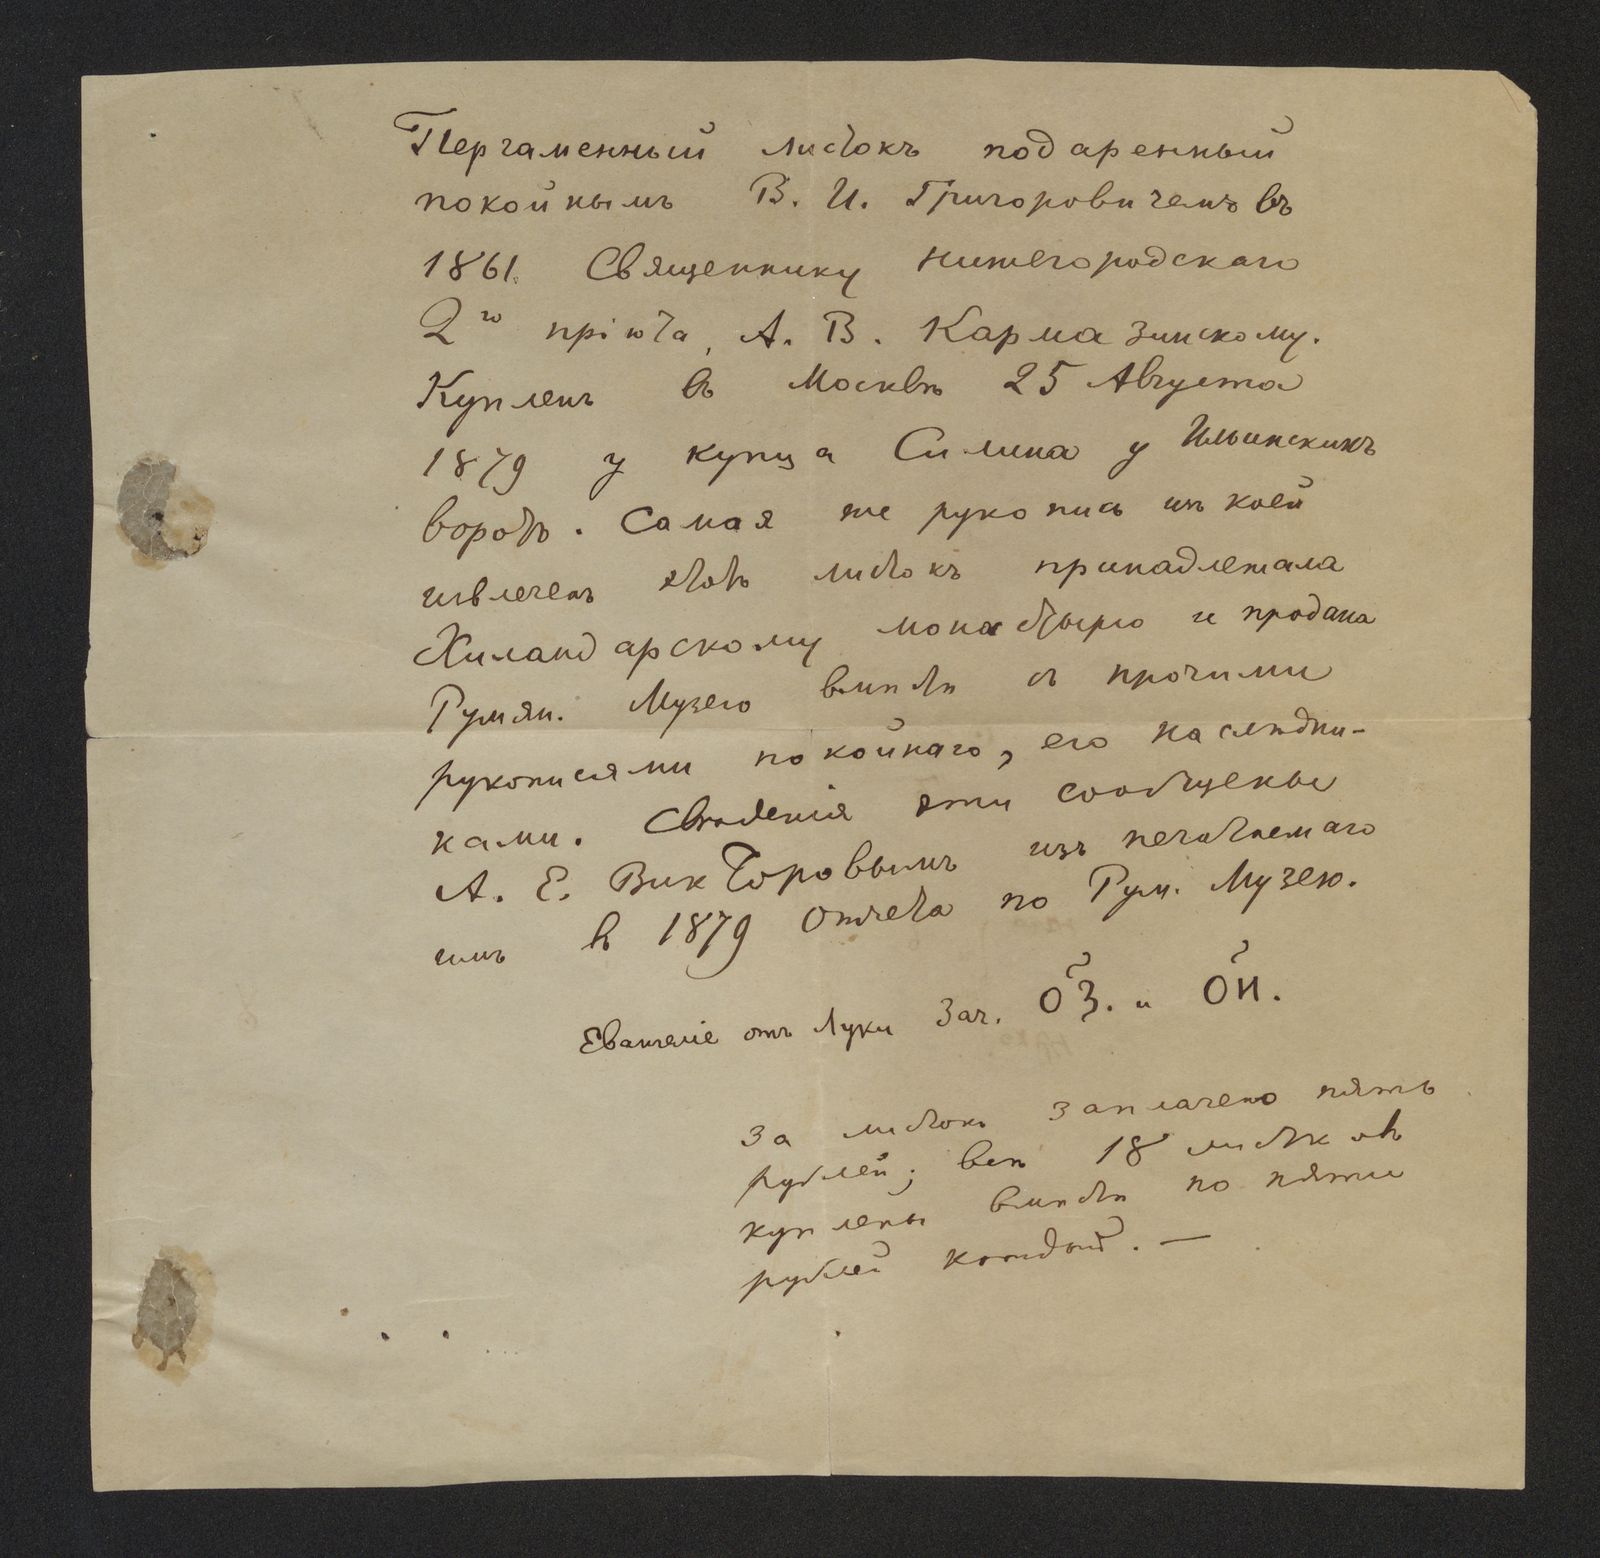 Пергаменный листокъ подаренный
покойнымъ В. И. Григоровичемъ въ
1861. Священнику Нижегородскаго
2го пріюта, А. В. Кармазинскому.
Купленъ въ Москвѣ 25 Августа
1879 у купца Силина у Ильинскихъ
воротъ. Самая же рукопись изъ коей
извлеченъ этотъ листокъ принадлежала
Хиландарскому монастырю и продана
Румян. Музею вмѣстѣ съ прочими
рукописями покойнаго, его наслѣдни-
ками. Свѣдения эти сообщены
А. Е. Викторовымъ изъ печатаемаго
имъ въ 1879 Отчета по Рум. Музею.
Евангеліе отъ Луки Зач. О҃З. и О҃И.
За листокъ заплачено пять
рублей; всѣ 18 листковъ
куплены вмѣстѣ по пяти
рублей каждый. —